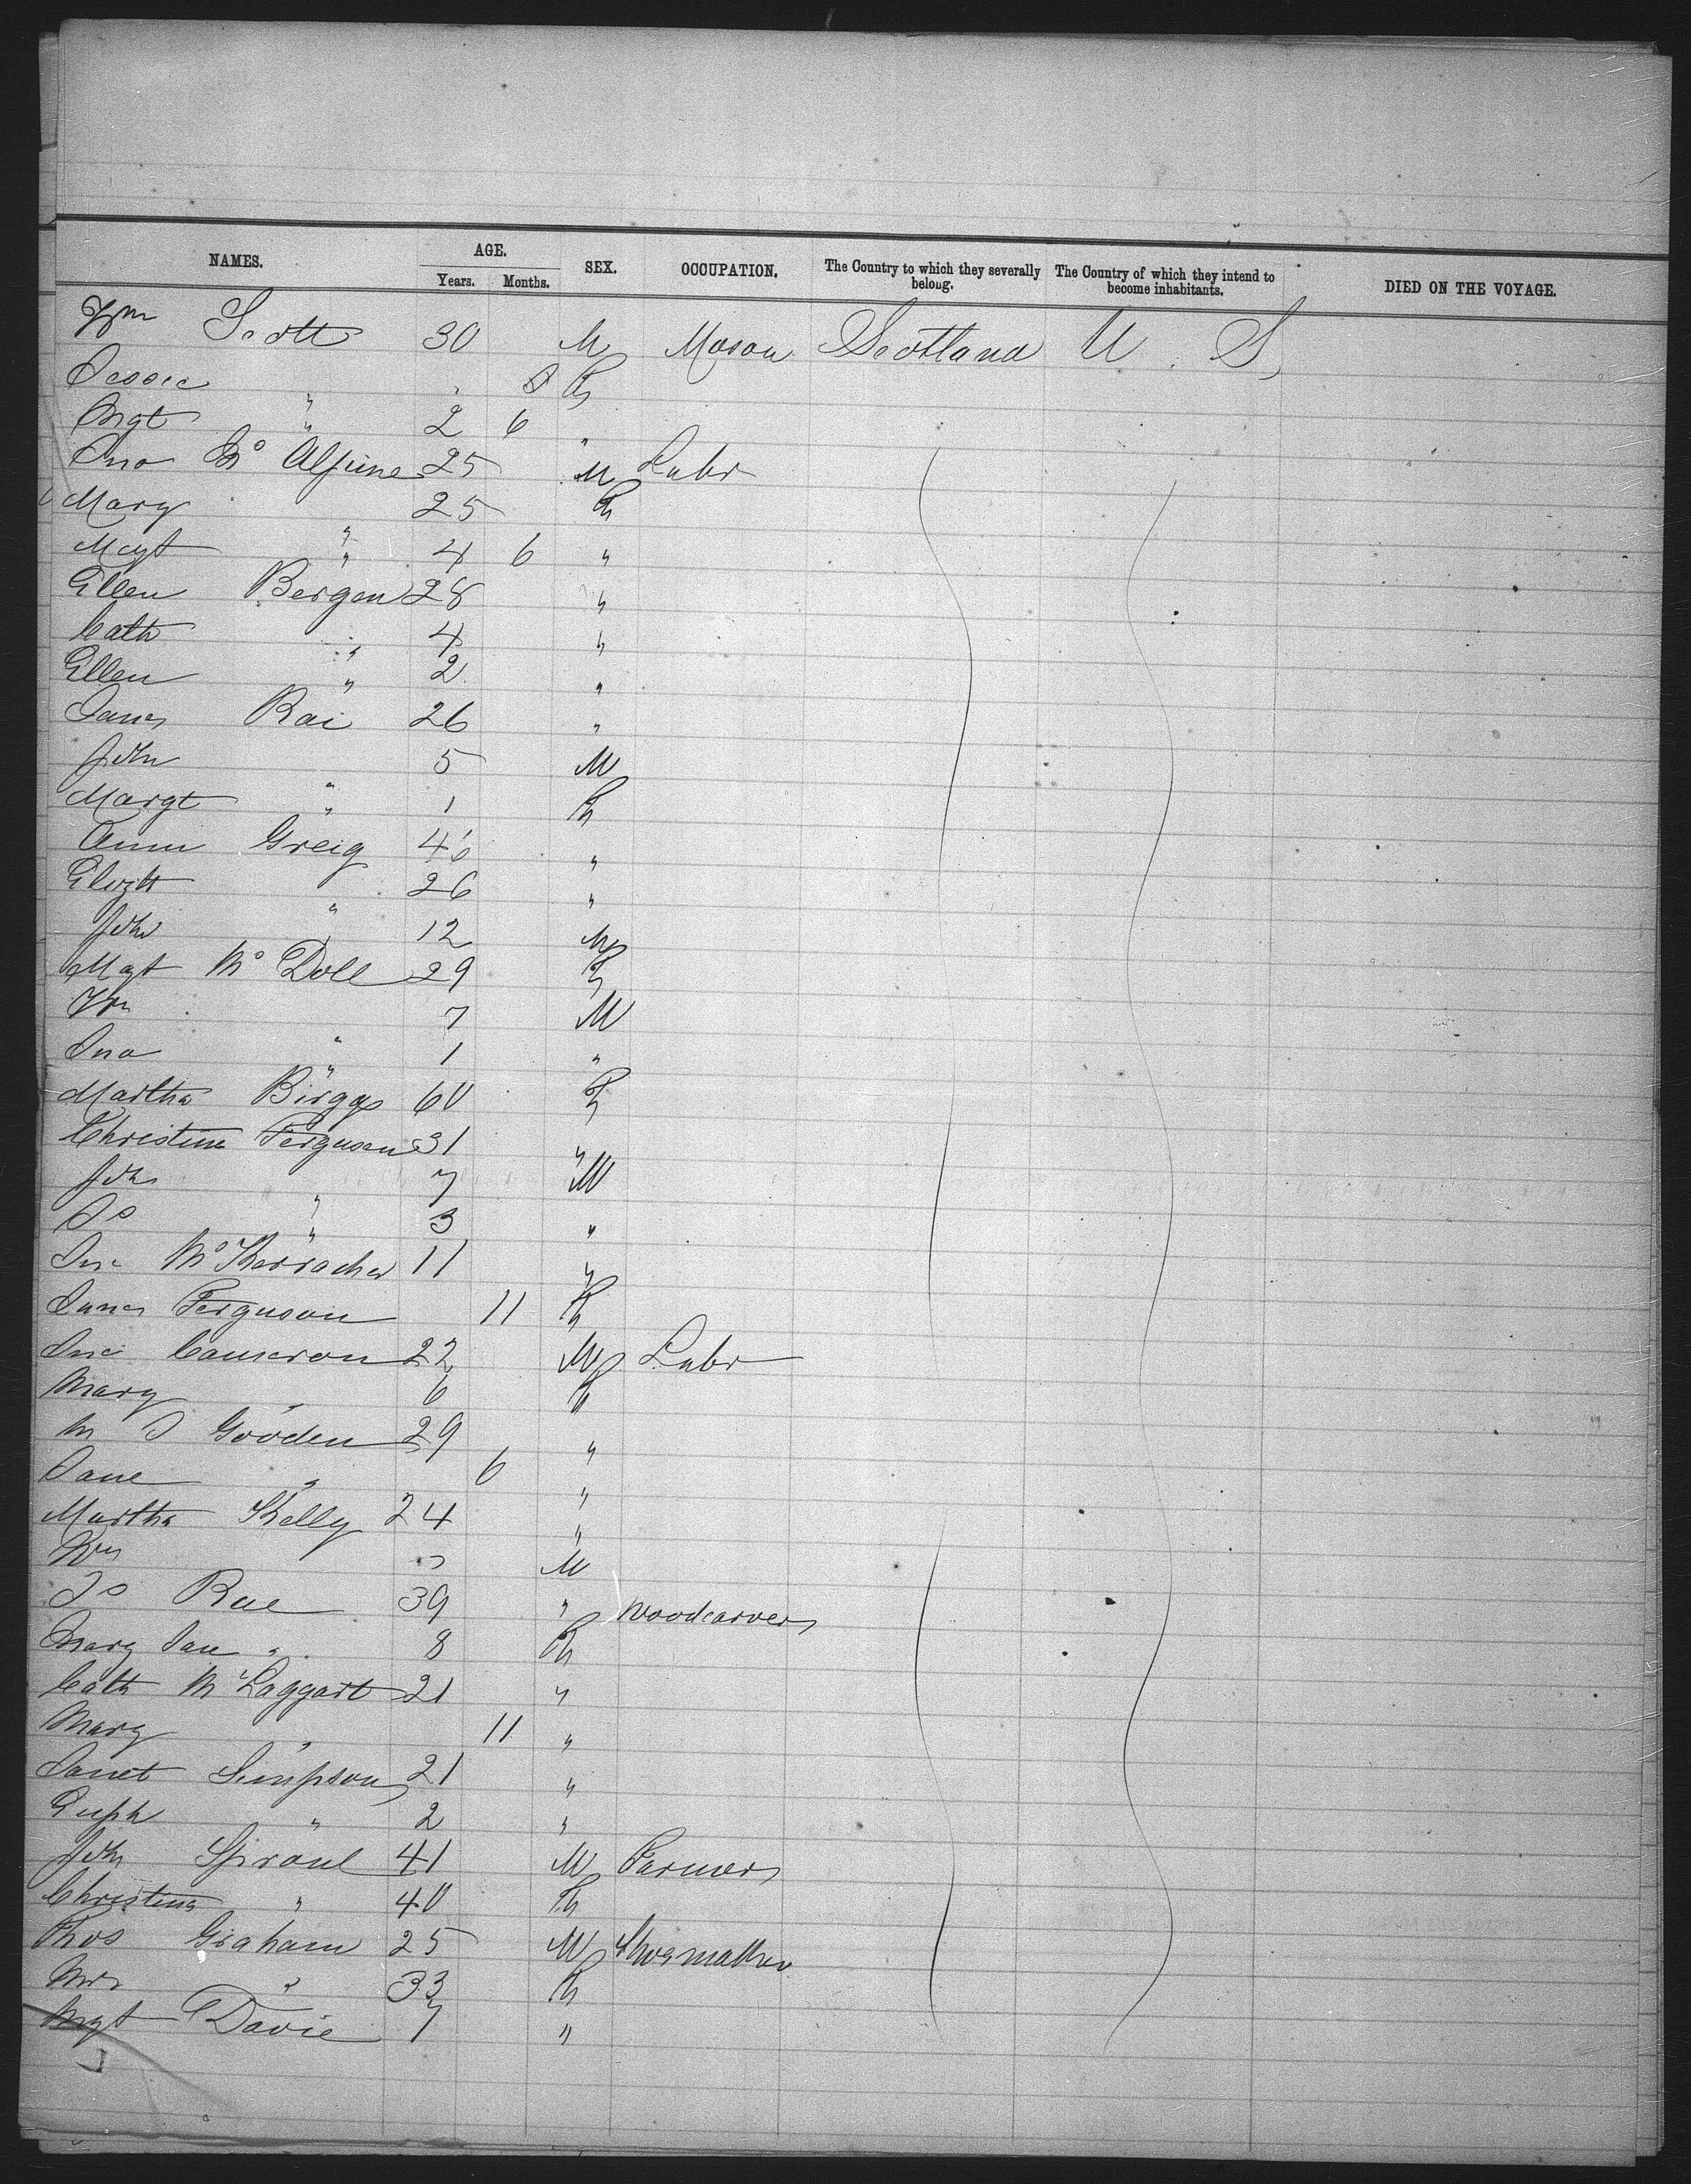 NAMES. AGE. Years. Months. SEX. OCCUPATION. The Country to which they severally belong. The Country of which they intend to become inhabitants. DIED ON THE VOYAGE.
Wm Scott 30 M Mason Scotland U. S.
Jessie " 8 F
Mgt " 2 6 "
Jno Mc Alpine 25 M Labr
Mary " 25 F
Mgt " 4 6 "
Ellen Bergen 28 "
Cath " 4 "
Ellen " 2 "
Janes Rai 26 "
John " 5 M
Margt " 1 F
Annie Greig 46 "
Elizth " 26 "
John " 12 M
Mgt Mc Doll 29 F
Wm " 7 M
Jno " 1 "
Martha Birggs 60 F
Christina Ferguson 31 "
John " 7 M
Js " 3 "
Jno Mc Kerracher 11 "
Janes Ferguson 11 F
Jno Cameron 22 M Labr
Mary " 6 F
M J Gooden 29 "
Jane " 6 "
Martha Kelly 24 "
Wm M
Js Rae 39 " Woodcarver
Mary Jan " 8 F
Cath Mc Taggart 21 "
Mary " 11 "
Janet Simpson 21 "
Euph " 2 "
John Sproul 41 M Farmer
Christina " 40 F
Thos Graham 25 M Shoemaker
Mrs " 33 F
Mgt Davie 7 "